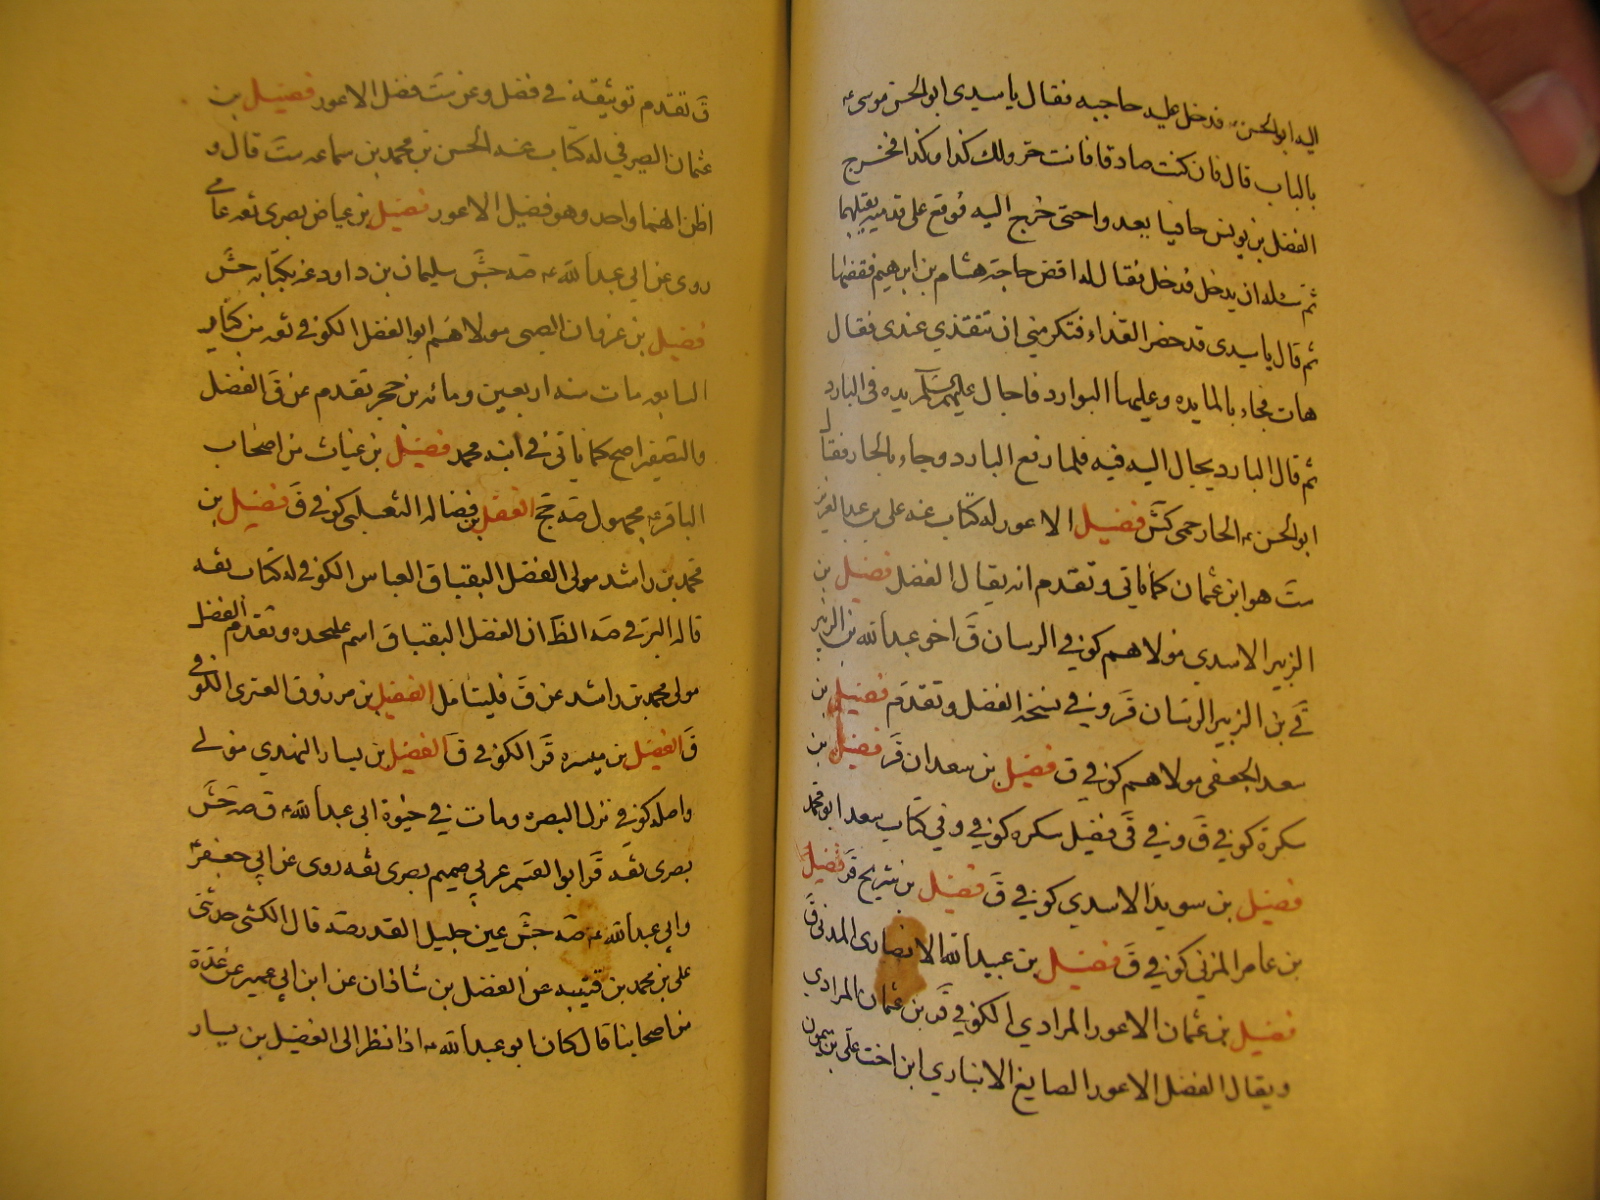 اليه ابو الحسن ع فدخل عليه حاجبه فقال يا سيدي ابو الحسن موسى ع
بالباب قال فان كنت صادقا فانت حر ولك كذا وكذا فخرج
الفضل بن يونس حافيا يعدو احتى خرج اليه فوقع على قدميه يقبلهما
ثم سئله ان يدخل فدخل فقال له اقض حاجة هشام بن ابرهيم فقضاها
ثم قال يا سيدى قد حضر الغداء فتكرمني ان تتغذي عندى فقال
هات فجاء بالمايده وعليها البوارد فاجال عليهم السلم يده في البارد
ثم قال البارد يجال اليه فيه فلما رفع البارد وجاء بالحار فقال
ابو الحسن ع الحار حمى كش فضيل الاعور له كتاب عنه علي بن عبد العزيز
ست هو ابن عثمان كما ياتي وتقدم انه يقال الفضل فضيل بن
الزبير الاسدي مولاهم كوفي الرسان ق اخو عبد الله بن الزبير
في بن الزبير الرسان قر وفي نسخة الفضل وتقدم فضيل بن
سعد الجعفي مولاهم كوفي ق فضيل بن سعدان قر فضيل بن
سكرة كوفي ق وفي في ق فضيل سكره كوفي وفي كتاب سعد ابو محمد
فضيل بن سويد الاسدي كوفي ق فضيل بن شريح قر فضيل
بن عامر المزني كوفي ق فضيل بن عبيد الله الانصارى المدني ق
فضيل بن عثمان الاعور المرادي الكوفي قر بن عثمان المرادي
ويقال الفضل الاعور الصايغ الانباري ابن اخت علي بن ميمون
ق تقدم توثيقه في فضل وعن ست فضل الاعور فضيل بن
عثمان الصيرفي له كتاب عنه الحسن بن محمد بن سماعه ست قال و
اظن انهما واحد وهو فضيل الاعور فضيل بن عياض بصرى ثقه عامي
روى عن ابي عبد الله ع صه جش سليمان بن داود عنه بكتابه جش
فضيل بن غزوان الضبي مولاهم ابو الفضل الكوفي ثقه من كبار
السابعه مات سنه اربعين ومائه بن حجر تقدم عن ق الفضل
والتصغير اصح كما ياتي في ابنه محمد فضيل بن غياث من اصحاب
الباقر ع مجهول صه جخ الفضل بن فضاله التغلبي كوفي ق فضيل بن
محمد بن راشد مولى الفضل البقباق العباس الكوفي له كتاب ثقه
قاله البرقي صه الظ ان الفضل البقباق اسم عليحده وتقدم الفضل
مولى محمد بن راشد عن ق فليتامل الفضيل بن مرزوق العنزى الكوفي
ق الفضيل بن ميسره قر الكوفي ق الفضيل بن يسار النهدي مولى
واصله كوفي نزل البصره ومات في حيوة ابى عبد الله ع ق صه جش
بصرى ثقه قر ابو القسم عربي صميم بصرى ثقه روى عن ابي جعفر ع
وابي عبد الله ع صه جش عين جليل القدر صه قال الكشى حدثنى
على بن محمد بن قتيبه عن الفضل بن شاذان عن ابن ابي عمير عن عدة
من اصحابنا قال كان ابو عبد الله ع اذا نظر الى الفضيل بن يسار